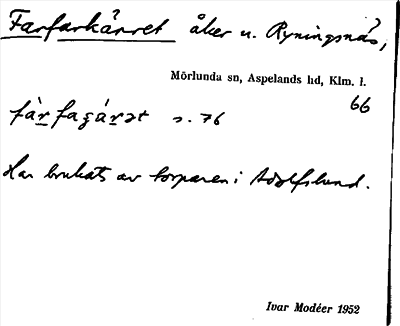 Farfarkärret åker u. Ryningsnäs,
Mörlunda sn, Aspelands hd, Klm. l.
66
fàrfagárət s. 76
Har brukats av torparen i Adolfslund.
Ivar Modéer 1952